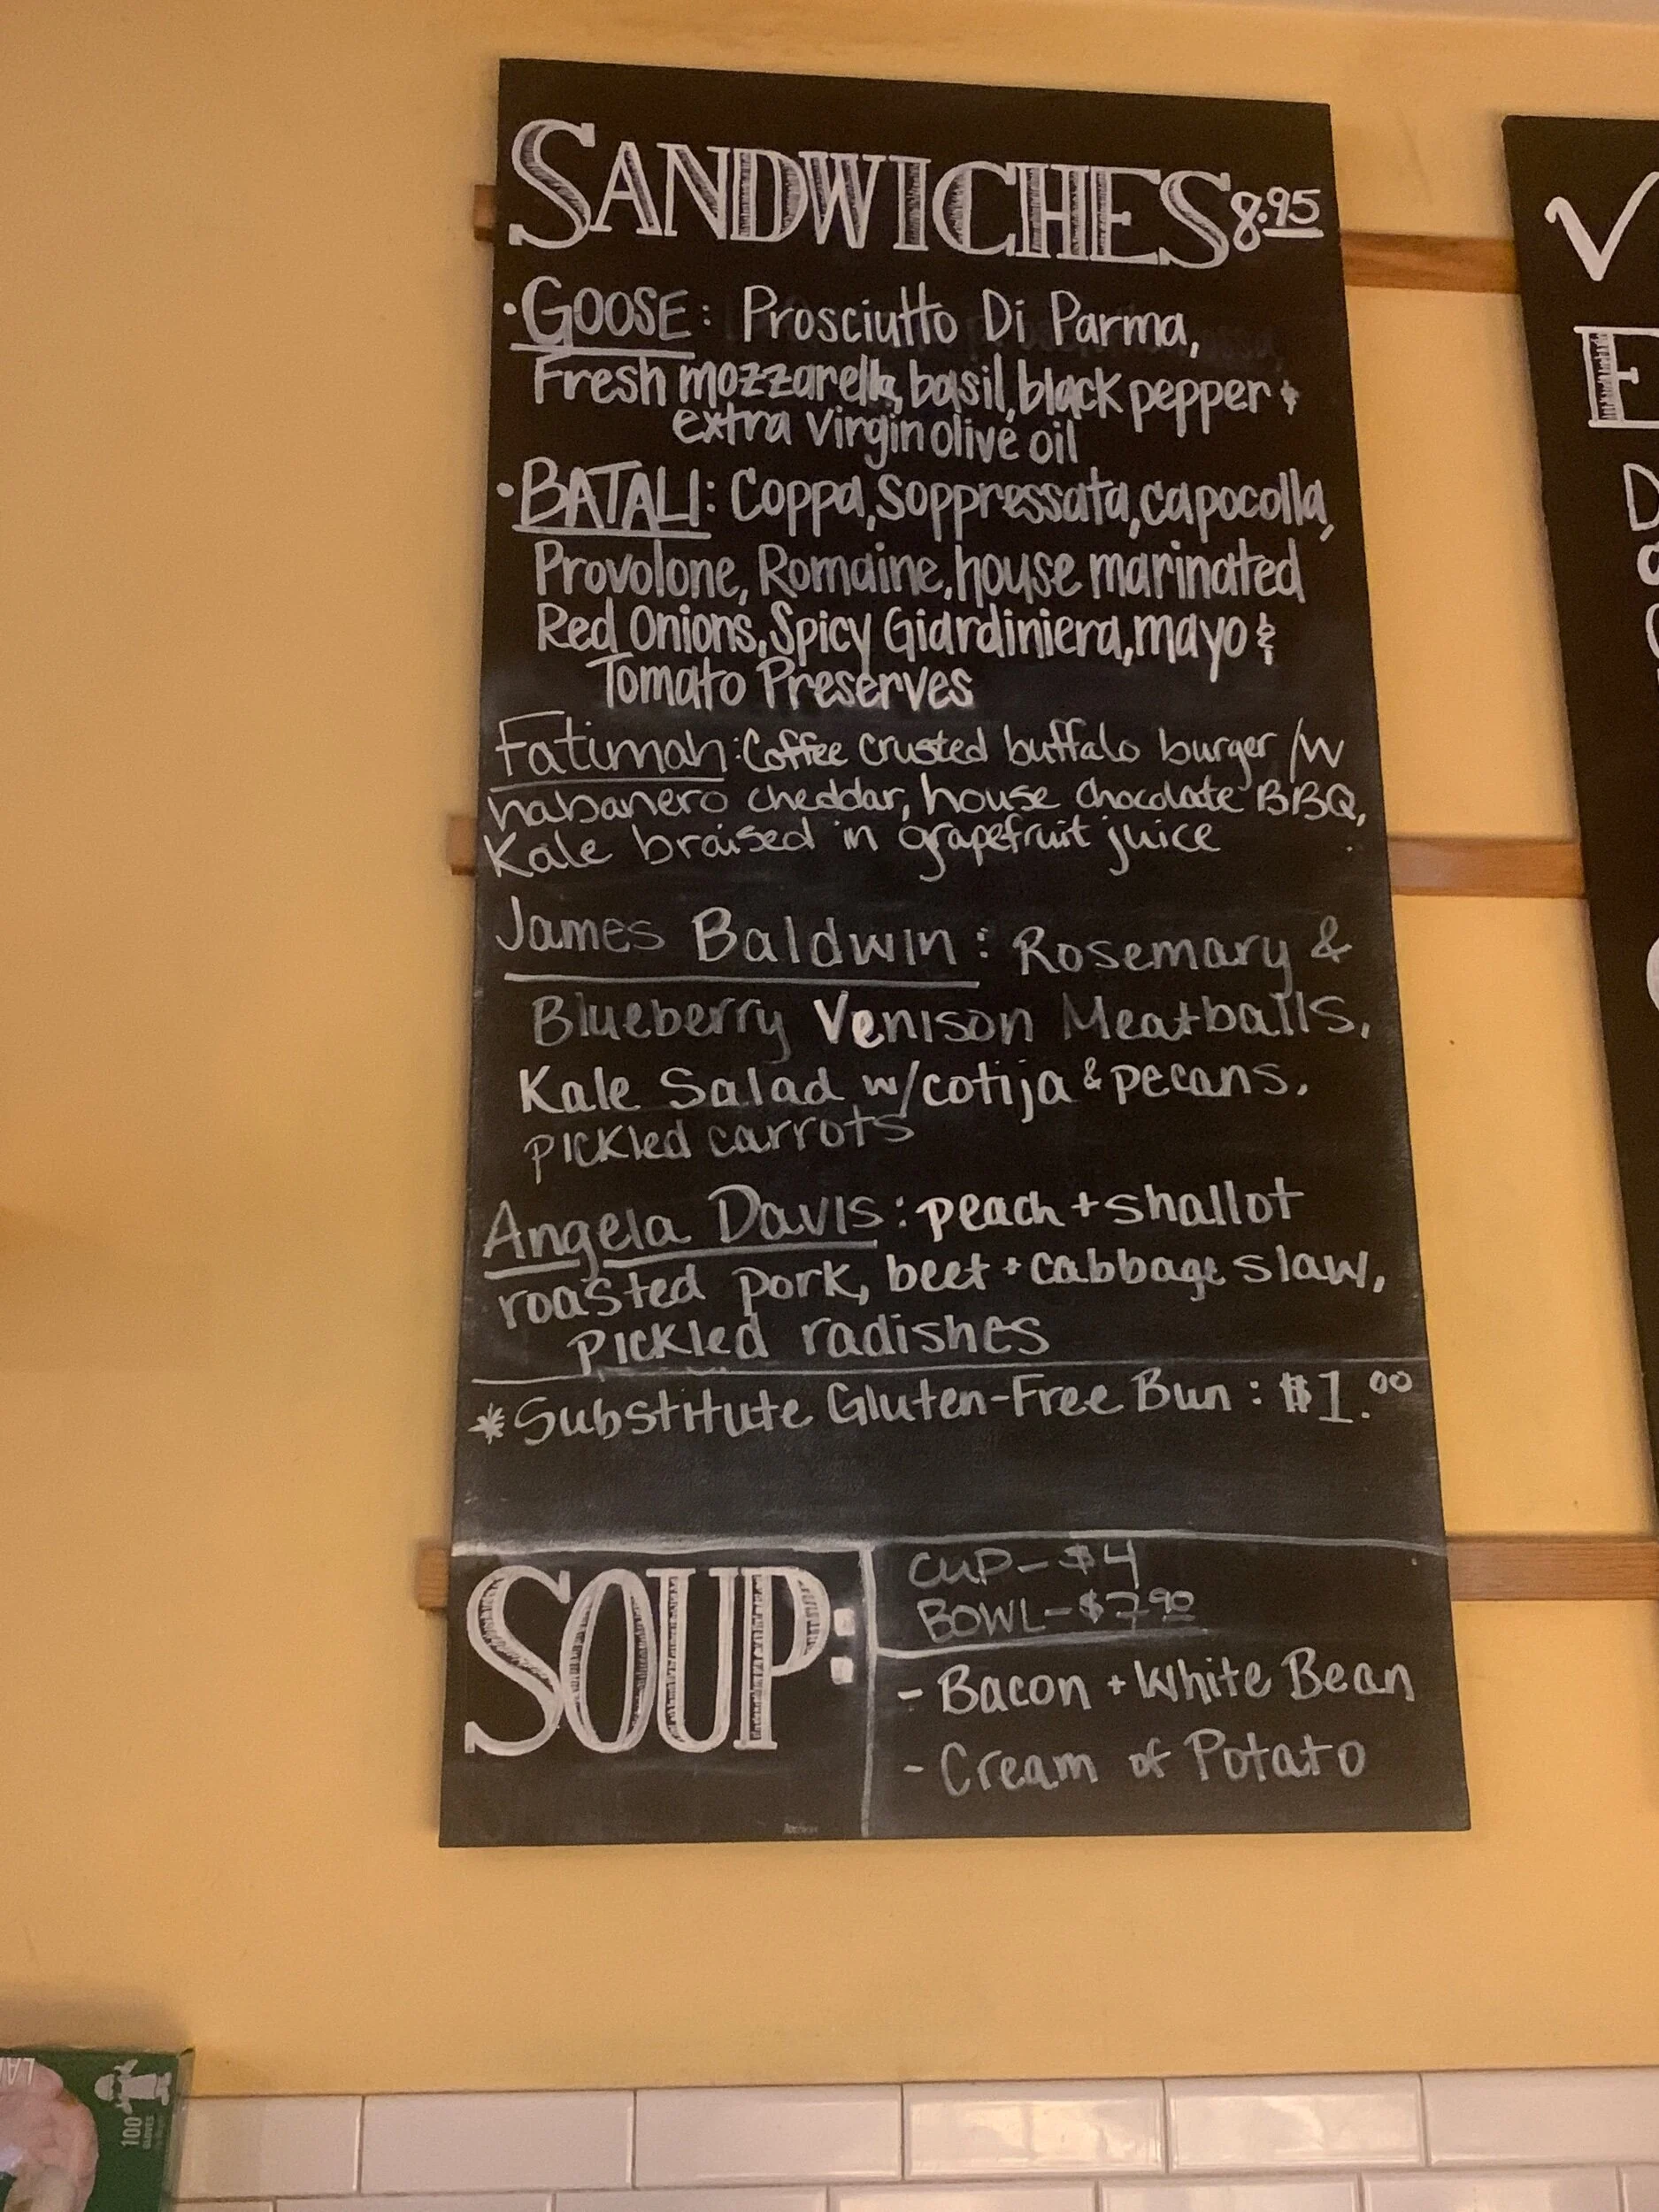 SANDWICHES 8.95
•GOOSE: Prosciutto Di Parma,
Fresh mozzarella, basil, black pepper +
extra virgin olive oil
•BATALI: Coppa, Soppressata, capocolla,
Provolone, Romaine, house marinated
Red Onions, Spicy Giardiniera, mayo &
Tomato Preserves
Fatimah: Coffee crusted buffalo burger /w
habanero cheddar, house chocolate BBQ,
Kale braised in grapefruit juice
James Baldwin: Rosemary &
Blueberry Venison Meatballs,
Kale Salad w/cotija & pecans,
pickled carrots
Angela Davis: peach + shallot
roasted pork, beet + cabbage slaw,
pickled radishes
*Substitute Gluten-Free Bun: $1.00
SOUP:
CUP- $4
BOWL- $7.90
- Bacon + White Bean
- Cream of Potato
100
GLOVES